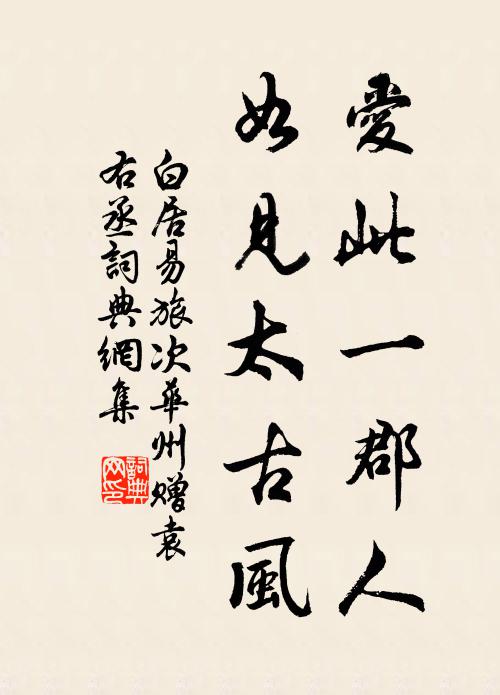 愛此一郡人
如見太古風
白居易旅次華州贈袁
右丞詞典網集
詞典
网印